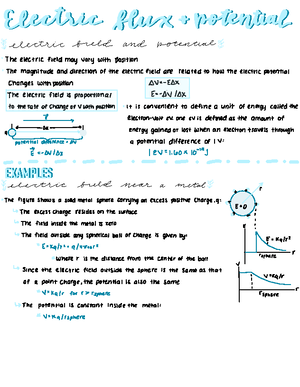 Electric flux + potential
electric field and potential
The electric field may vary with position
The magnitude and direction of the electric field are related to how the electric potential
changes with position
ΔV=-EΔx
E=-ΔV/Δx
The electric field is proportional
to the rate of change of V with position
It is convenient to define a unit of energy called the
electron-volt eV and eV is defined as the amount of
energy gained or lost when an electron travels through
a potential difference of 1V:
potential difference = ΔV
E = -ΔV/Δx
EXAMPLES
electric field near a metal
The figure shows a solid metal sphere carrying an excess positive charge, q:
The excess charge resides on the surface
The field inside the metal is zero
The field outside any spherical ball of charge is given by:
Where r is the distance from the center of the ball
E=0
r
E = Kq/r²
rsphere
Since the electric field outside the sphere is the same as that
of a point charge, the potential is also the same
V=Kq/r for r > rsphere
The potential is constant inside the metal:
V=Kq/rsphere
V
V=Kq/r
r
rsphere